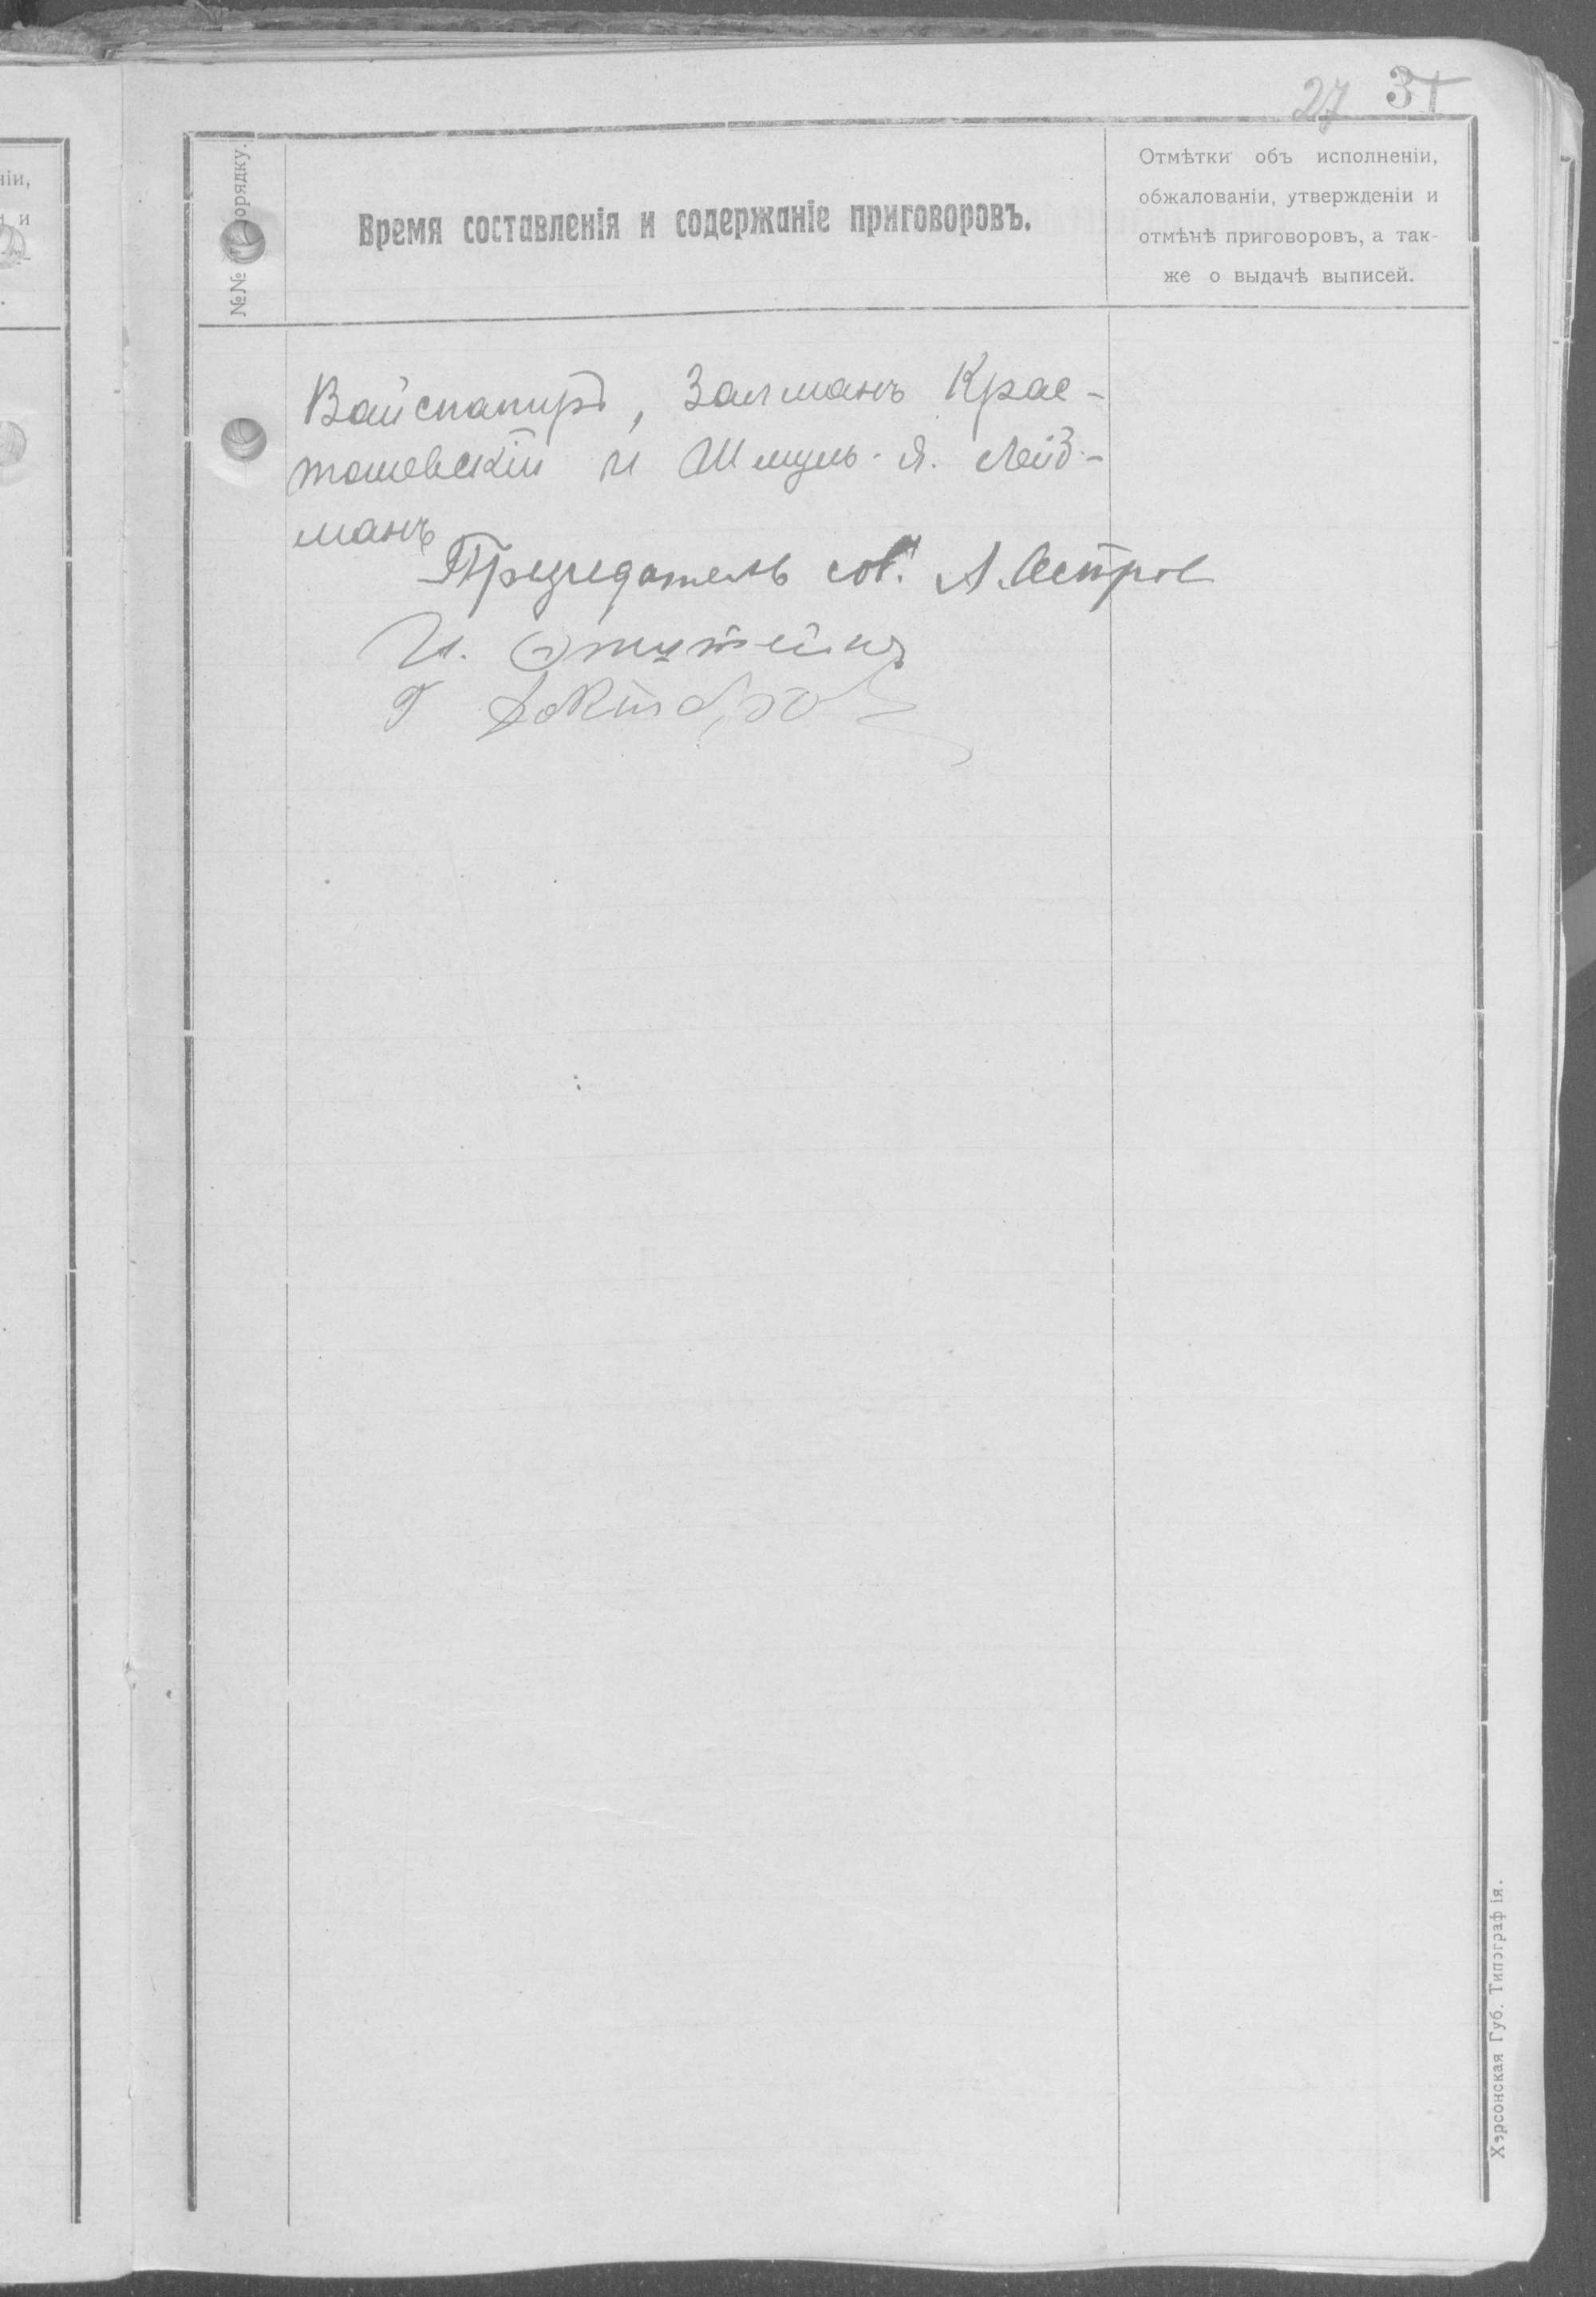 27 31
№№ по порядку.
Время составленія и содержаніе приговоровъ.
Отмѣтки объ исполненіи,
обжалованіи, утвержденіи и
отмѣнѣ приговоровъ, а так-
же о выдачѣ выписей.
Вайспапиръ, Залманъ Крас-
тошевскій и Шмуль-Я. Лейд-
манъ
Предсѣдатель сов. А. Остров
И.
Г
Херсонская Губ. Типографія.